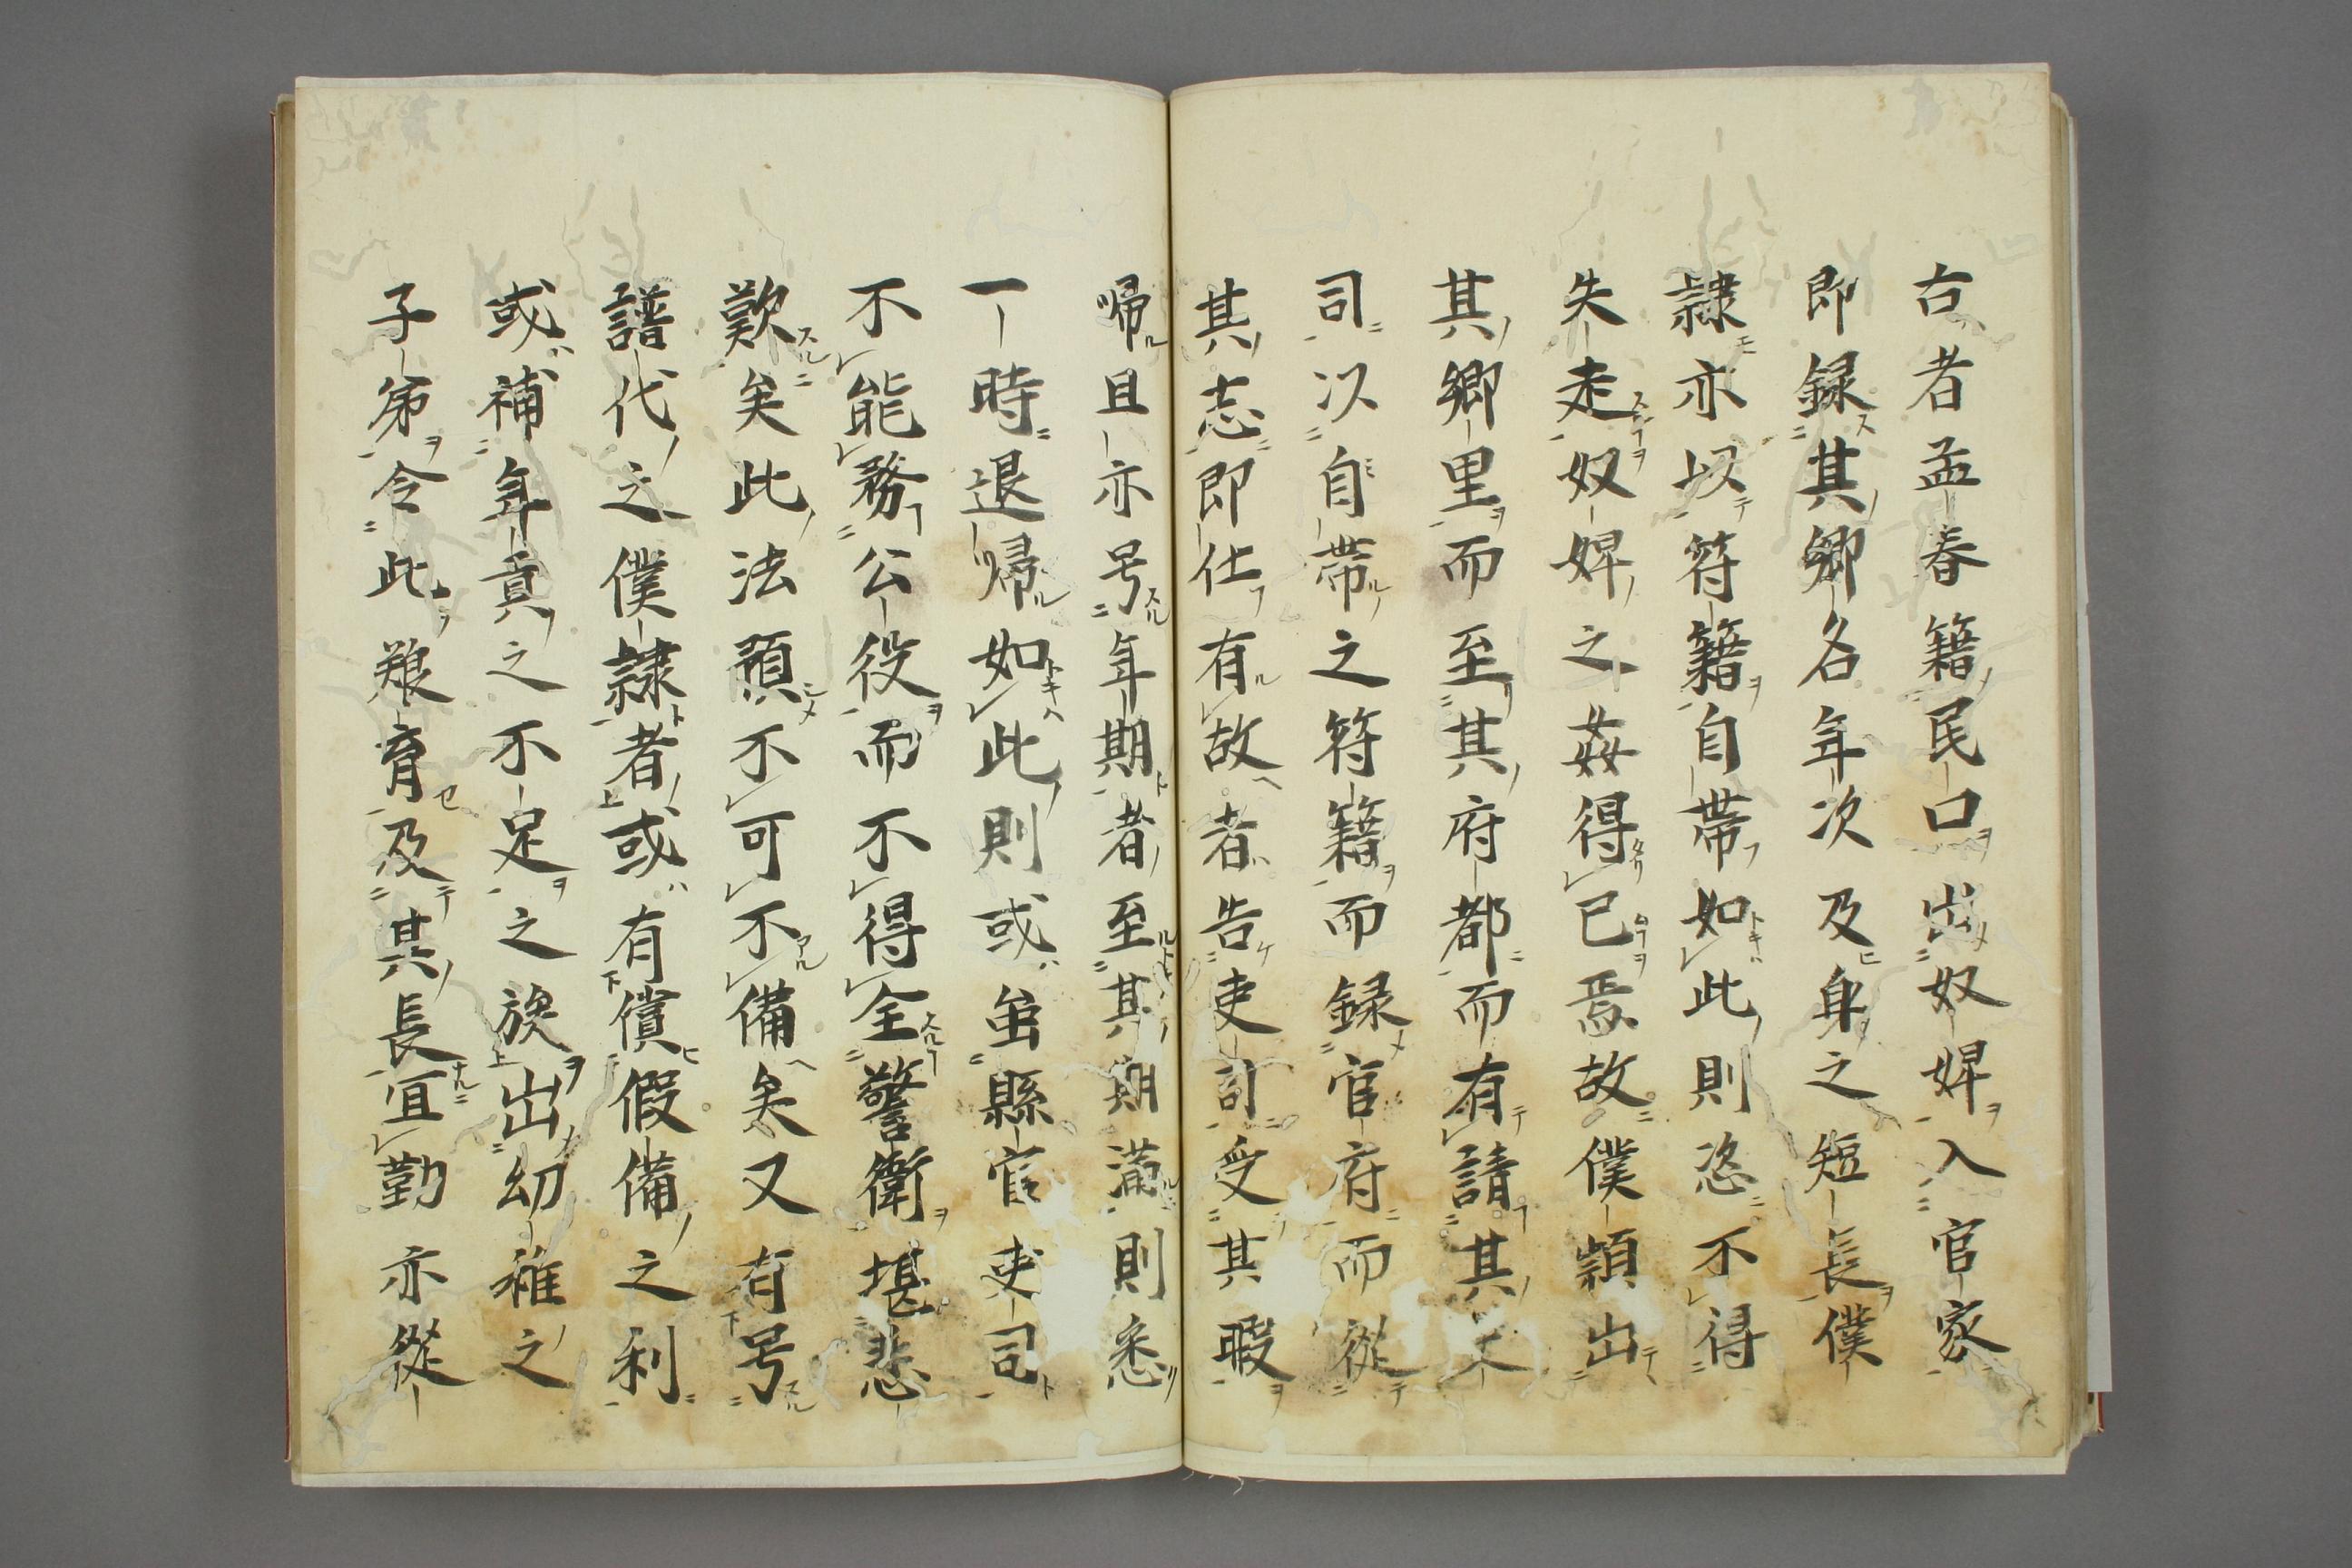 古者孟春籍民口出奴婢入官家
即録其郷名年次及身之短長僕
隷亦以符籍自帯如此則恣不得
失走奴婢之姦得已焉故僕頴出
其郷里而至其府都而有請其
司以自帯之符籍而録官府而從
其志即仕有故者告吏訂受其暇
帰且亦号年期者至其期満則悉
一時退帰如此則或虽縣官吏司
不能務公役而不得全警衛堪悲
歎矣此法預不可不備矣又有号
譜代之僕隷者或有償假備之利
或補年貢之不足之族出幼稚之
子弟令此艱育及其長宜勤亦従